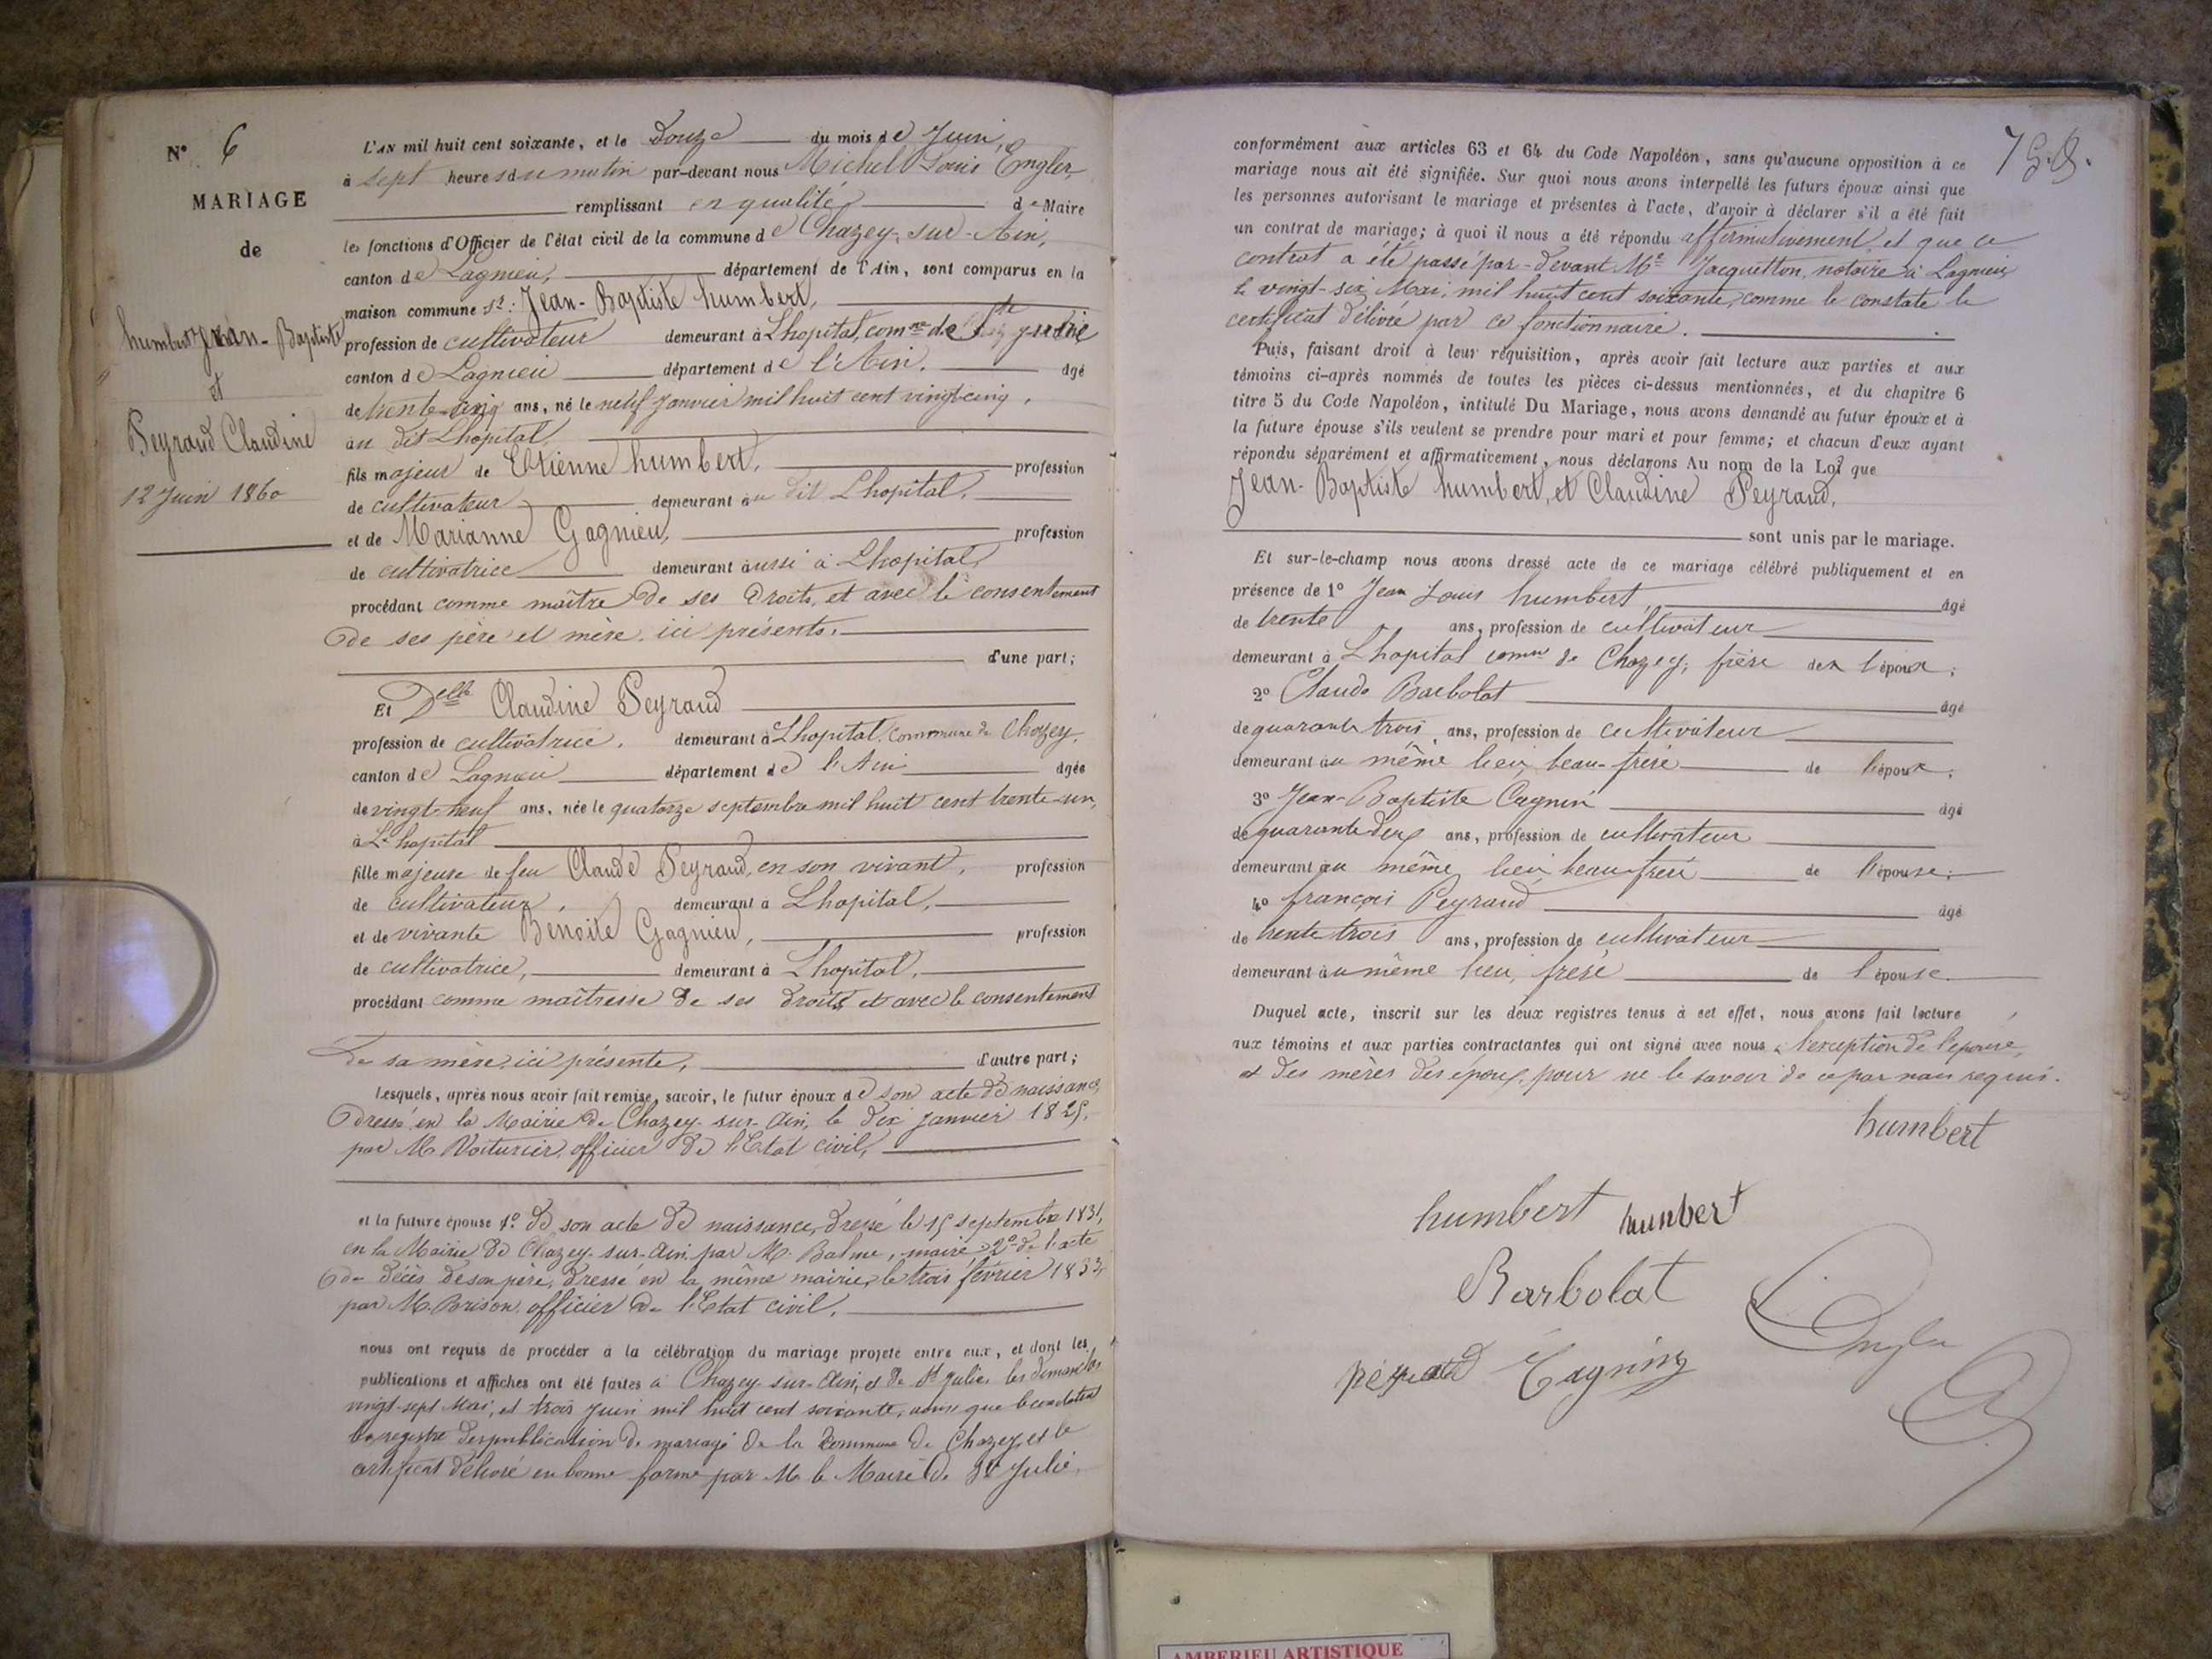 N° 6
MARIAGE
de
humbert Jean-Baptiste
et
Peyraud Claudine
12 Juin 1860
L'AN mil huit cent soixante, et le Douze du mois de Juin,
à sept heures du matin par-devant nous Michel Louis Engler,
remplissant en qualité de Maire
les fonctions d'Officier de l'état civil de la commune de Chazey-sur-Ain,
canton de Lagnieu, département de l'Ain, sont comparus en la
maison commune Sr: Jean-Baptiste humbert,
profession de cultivateur demeurant à Lhopital, comne de Ste Julie
canton de Lagnieu département de l'Ain. âgé
de trente-cinq ans, né le neuf Janvier mil huit cent vingt-cinq,
au dit Lhopital
fils majeur de Etienne humbert, profession
de cultivateur demeurant au dit Lhopital,
et de Marianne Gagnieu, profession
de cultivatrice demeurant aussi à Lhopital,
procédant comme maître de ses droits, et avec le consentement
de ses père et mère, ici présents.
d'une part;
Et Delle Claudine Peyraud
profession de cultivatrice, demeurant à Lhopital, commune de Chazey,
canton de Lagnieu département de l'Ain âgée
de vingt-neuf ans, née le quatorze septembre mil huit cent trente-un,
à L'hopital
fille majeure de feu Claude Peyraud, en son vivant, profession
de cultivateur, demeurant à Lhopital,
et de vivante Benoite Gagnieu, profession
de cultivatrice, demeurant à Lhopital,
procédant comme maîtresse de ses droits et avec le consentement
de sa mère, ici présente, d'autre part;
Lesquels, après nous avoir fait remise, savoir, le futur époux de son acte de naissance,
dressé en la Mairie de Chazey-sur-Ain, le dix janvier 1825,
par M. Voiturier, officier de l'Etat civil,
et la future épouse 1° de son acte de naissance, dressé le 15 septembre 1831,
en la Mairie de Chazey-sur-Ain, par M. Balme, maire, 2° de l'acte
de décès de son père, dressé en la même mairie, le trois février
par M. Brison, officier de l'Etat civil,
nous ont requis de procéder à la célébration du mariage projeté entre eux, et dont les
publications et affiches ont été faites à Chazey-sur-Ain, et de Ste Julie, les dimanches
vingt-sept Mai, et trois Juin mil huit cent soixante, ainsi que le constatent
le registre des publications de mariage de la commune de Chazey, et le
certificat délivré en bonne forme par M. le Maire de Ste Julie,
conformément aux articles 63 et 64 du Code Napoléon, sans qu'aucune opposition à ce
mariage nous ait été signifiée. Sur quoi nous avons interpellé les futurs époux ainsi que
les personnes autorisant le mariage et présentes à l'acte, d'avoir à déclarer s'il a été fait
un contrat de mariage; à quoi il nous a été répondu affirmativement, et que ce
contrat a été passé par-devant Me Jacquetton, notaire à Lagnieu
le vingt-six Mai, mil huit cent soixante, comme le constate le
certificat délivré par ce fonctionnaire.
Puis, faisant droit à leur réquisition, après avoir fait lecture aux parties et aux
témoins ci-après nommés de toutes les pièces ci-dessus mentionnées, et du chapitre 6
titre 5 du Code Napoléon, intitulé Du Mariage, nous avons demandé au futur époux et à
la future épouse s'ils veulent se prendre pour mari et pour femme; et chacun d'eux ayant
répondu séparément et affirmativement, nous déclarons Au nom de la Loi que
Jean-Baptiste humbert, et Claudine Peyraud,
sont unis par le mariage.
Et sur-le-champ nous avons dressé acte de ce mariage célébré publiquement et en
présence de 1° Jean Louis humbert, âgé
de trente ans, profession de cultivateur
demeurant à Lhopital comne de Chazey, frère de l'époux;
2° Claude Barbolat âgé
de quarante trois ans, profession de cultivateur
demeurant au même lieu, beau-frère de l'époux;
3° Jean-Baptiste Cagnin âgé
de quarante deux ans, profession de cultivateur
demeurant au même lieu, beau-frère de l'épouse;
4° françois Peyraud âgé
de trente trois ans, profession de cultivateur
demeurant au même lieu, frère de l'épouse.
Duquel acte, inscrit sur les deux registres tenus à cet effet, nous avons fait lecture
aux témoins et aux parties contractantes qui ont signé avec nous à l'exception de l'épouse,
et des mères des époux, pour ne le savoir de ce par nous requis.
humbert
humbert humbert
Barbolat
Engler
peyraud Cagnin
AMBERIEU ARTISTIQUE